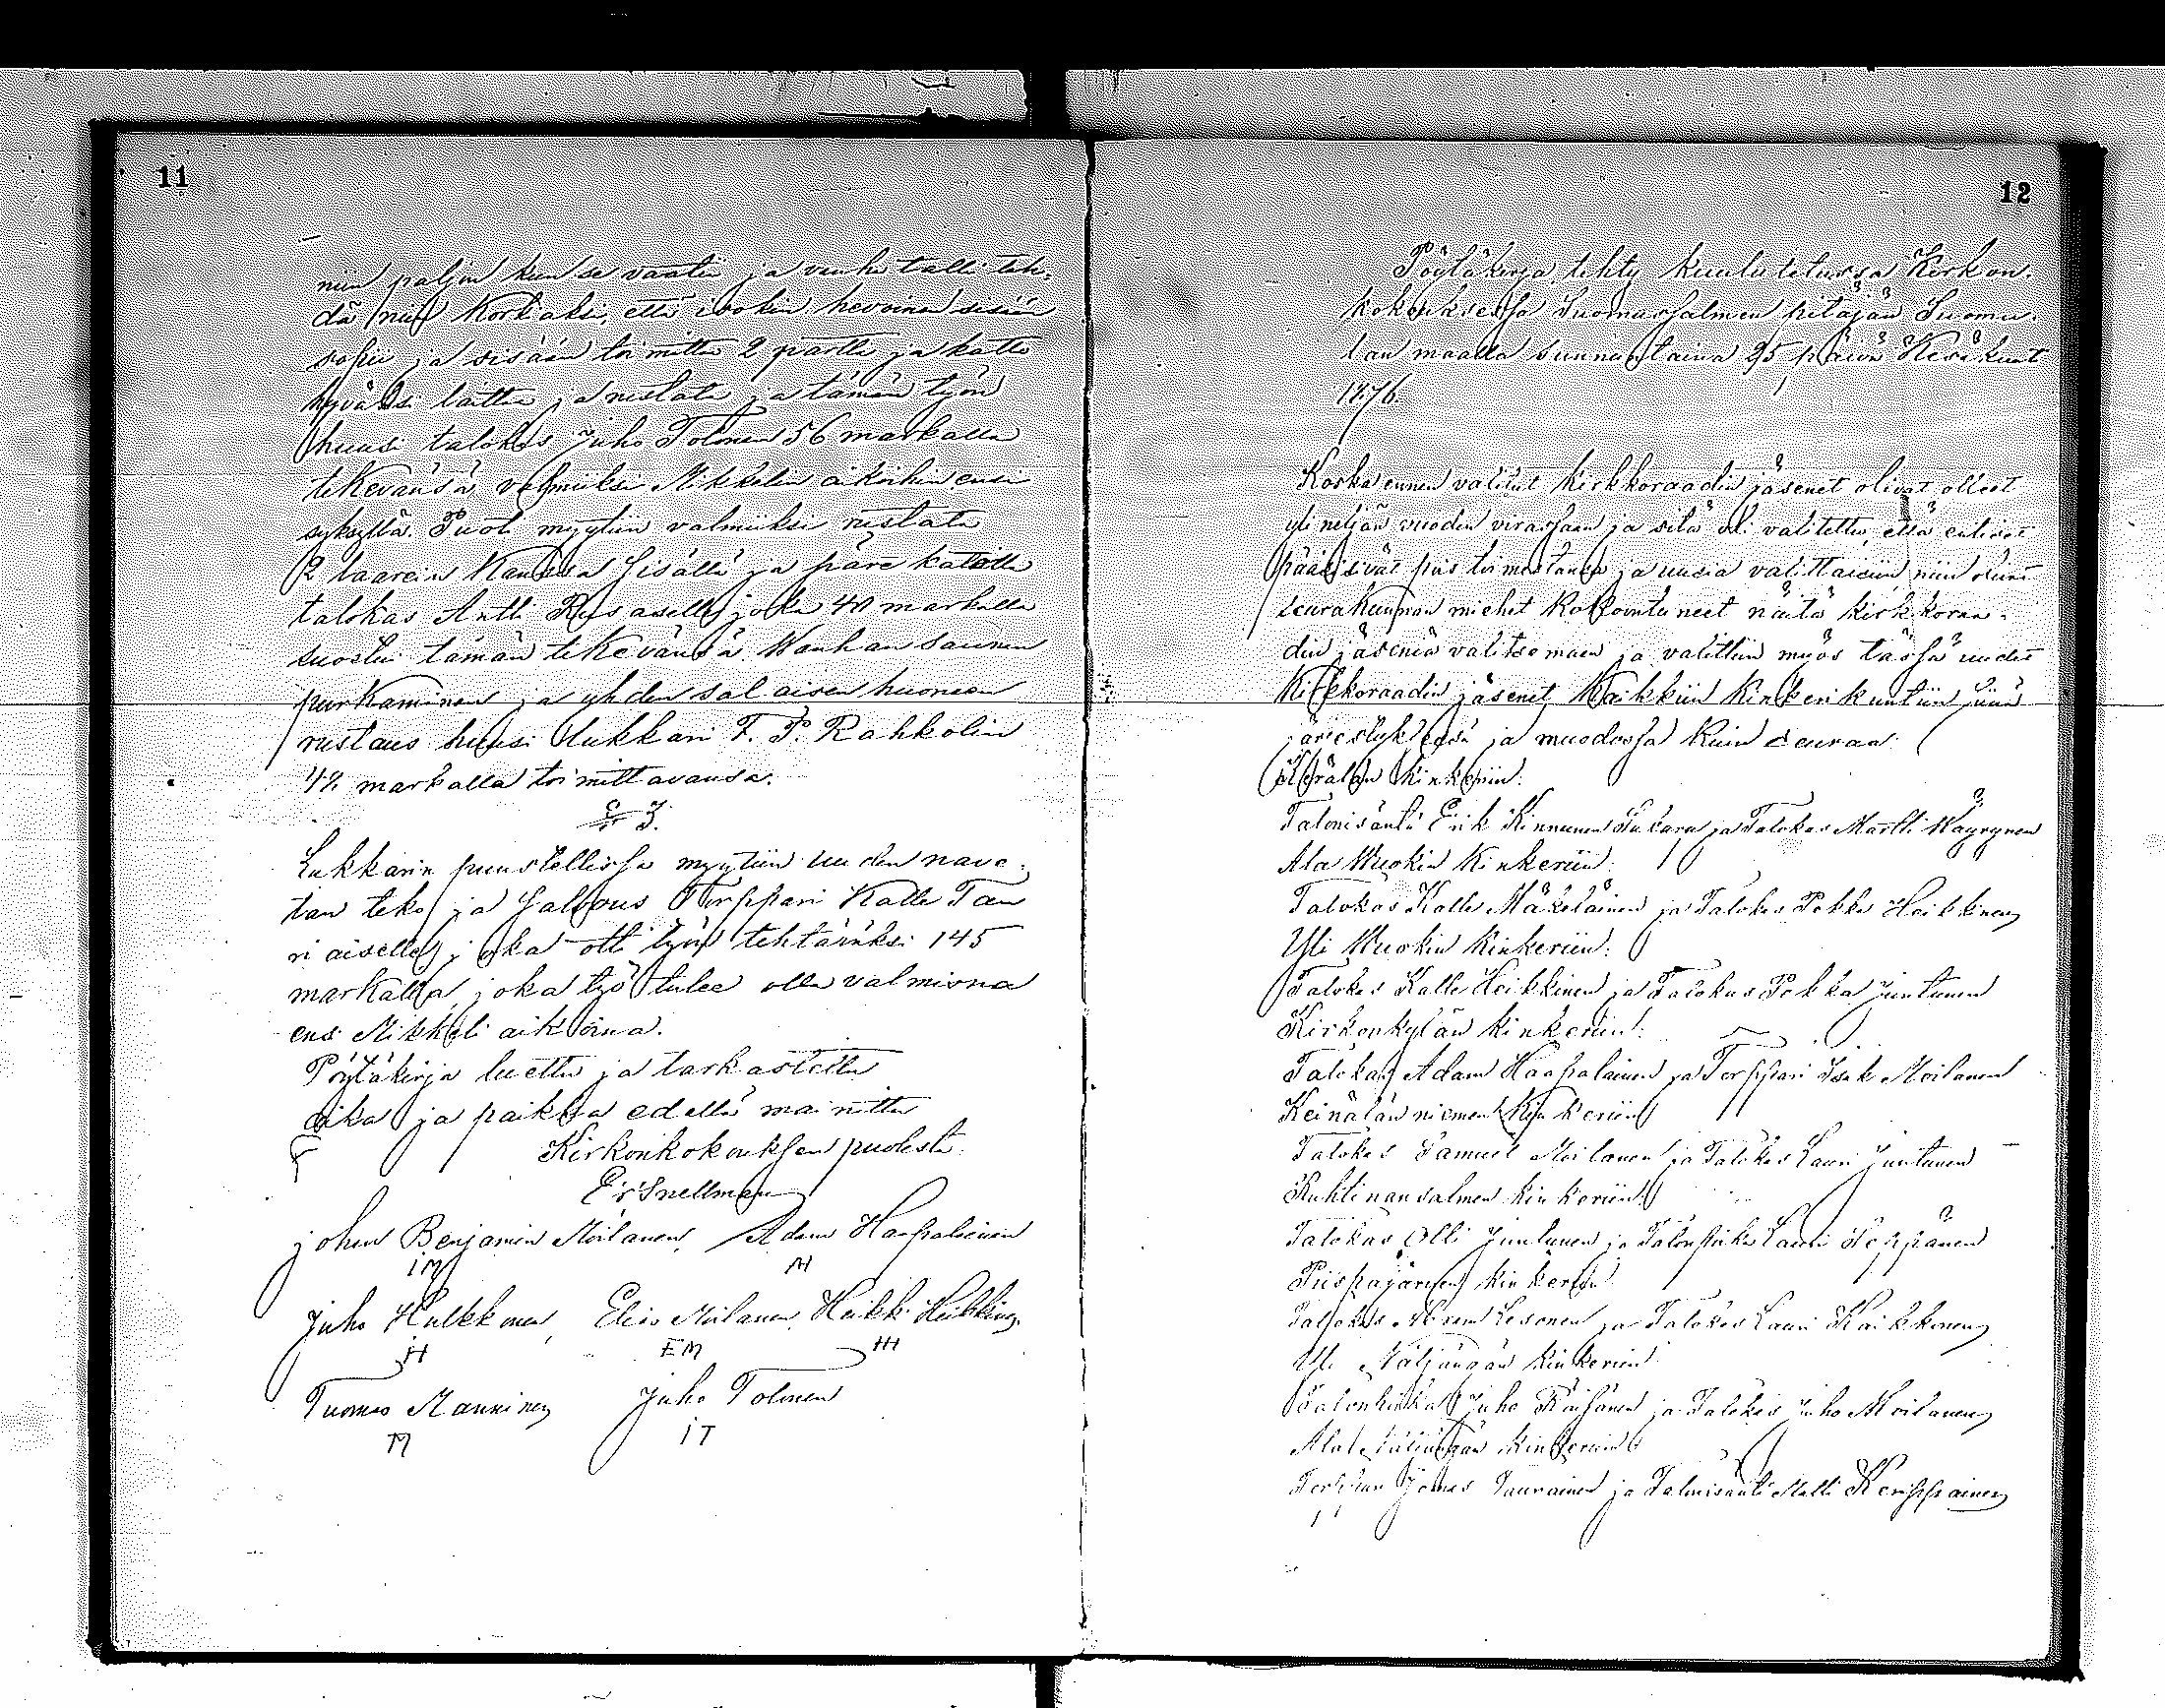 11
niin paljon kun se vaatii ja vanha talli teh-
dä niin korkiaksi, että isokin hevoinen sisään
sopii ja sisään toimittaa 2 partta ja katto
hyväksi laittaa ja rustata ja tämän työn
huusi talokas Juho Tolonen 56 markalla
tekevänsä valmiiksi Mikkelin aikoihin ensi
syksyllä. Puoti myytiin valmiiksi rustata
2 laarein kanssa sisällä ja päre katolla
talokas Antti Rusaselle, joka 40 markalla
suostui tämän tekevänsä. Wanhan saunan
purkaminen ja yhden salaisen huoneen
rustaus huusi lukkari F. P. Rahkolin
48 markalla toimittavansa.
§ 3.
Lukkarin puustellissa myytiin uuden nave-
tan teko ja salvous Torppari Kalle Tau
riaiselle, joka otti työn tehtäväksi 145
markalla, joka työ tulee olla valmisna
ens Mikkeli aikoina.
Pöytäkirja luettu ja tarkastettu
aika ja paikka edellä mainittu
Kirkonkokouksen puolesta:
Er Snellman
Johan Benjamin Moilanen, Adam Haapalainen
IM AH
Juho Hulkkonen, Elias Moilanen, Heikki Heikkinen,
JH EM HH
Tuomas Manninen Juho Tolonen
TM IT
12
Pöytäkirja tehty kuulutetussa Kirkon-
kokouksessa Suomussalmen pitäjän Suomu-
lan maalla sunnuntaina 25 päivä Kesäkuut
1876.
Koska ennen valitut kirkkoraadin jäsenet olivat olleet
yli neljän vuoden virassaan ja sitä oli valitettu, että entiset
pääsisivät pois toimestansa ja uusia valittaisiin niin olivat
seurakunnan miehet kokoontuneet näitä kirkkoraa-
din jäseniä valitsemaan ja valittiin myös tässä uudet
kirkkoraadin jäsenet kaikkiin kinkerikuntiin siinä
järjestyksessä ja muodossa kuin seuraa:
kinkeriin:
Talonisäntä Erik Kinnunen ja Talokas Martti Wäyrynen
Ala Wuokin kinkeriin:
Talokas Kalle Mäkeläinen ja Talokas Pekka Heikkinen
Yli Wuokin kinkeriin:
Talokas Kalle Heikkinen ja Talokas Pekka Juntunen
Kirkonkylän kinkeriin:
Talokas Adam Haapalainen ja Torppari Isak Moilanen
Keinälän niemen kinkeriin
Talokas Samuel Moilanen ja Talokas Lauri Juntunen
Ruhtinansalmen kinkeriin:
Talokas Olli Juntunen ja Talonpoika Lauri Seppänen
Piispajärven kinkeriin
Talokas Abram Kesonen ja Talokas Lauri Kaikkonen
Yli Näljängän kinkeriin:
Talonpoika Juho Räisänen ja Talokas Juho Moilanen
Ala Näljängän kinkeriin:
Torppari Jonas Tauriainen ja Talonisäntä Matti Keräppainen